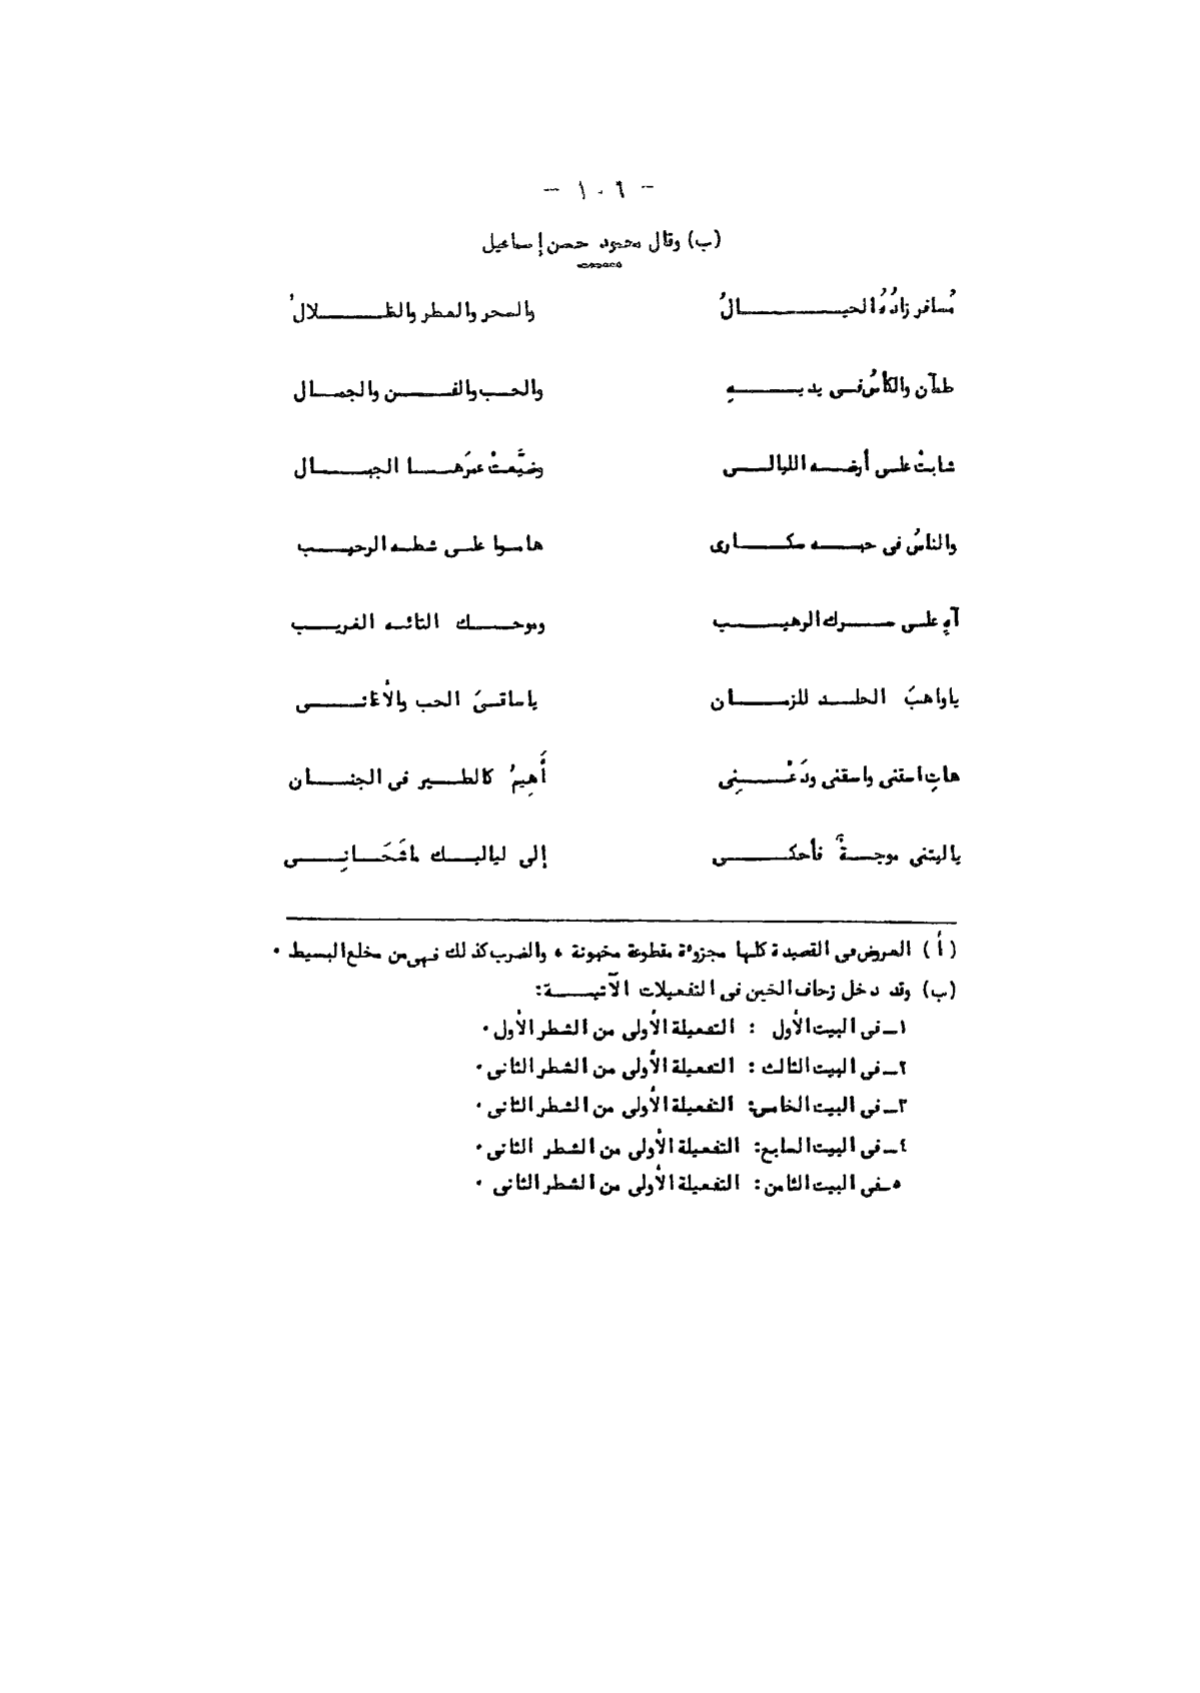 - ١٠٦ -
(ب) وقال محمود حسن إسماعيل
مُسافر زادُهُ الخيالُ والسحر والعطر والظلالُ
ظمآن والكأسُ فى يديهِ والحب والفن والجمال
شابتْ على أرضه الليالى وضيَّعتْ عمرَها الجبال
والناسُ فى حبه سكارى هاموا على شطه الرحيب
آهِ على سرك الرهيب وموجك التائه الغريب
ياواهبَ الخلد للزمان ياساقىَ الحب والأغانى
هاتِ اسقنى واسقنى ودَعْنِى أَهِيمُ كالطير فى الجنان
ياليتنى موجةٌ فأحكى إلى لياليك ماشَجَانِى
(أ) العروض فى القصيدة كلها مجزوءة مقطوعة مخبونة ، والضرب كذلك فهى من مخلع البسيط .
(ب) وقد دخل زحاف الخبن فى التفعيلات الآتية:
١ـ فى البيت الأول : التفعيلة الأولى من الشطر الأول .
٢ـ فى البيت الثالث : التفعيلة الأولى من الشطر الثانى .
٣ـ فى البيت الخامس: التفعيلة الأولى من الشطر الثانى .
٤ـ فى البيت السابع: التفعيلة الأولى من الشطر الثانى .
٥ـ فى البيت الثامن: التفعيلة الأولى من الشطر الثانى .